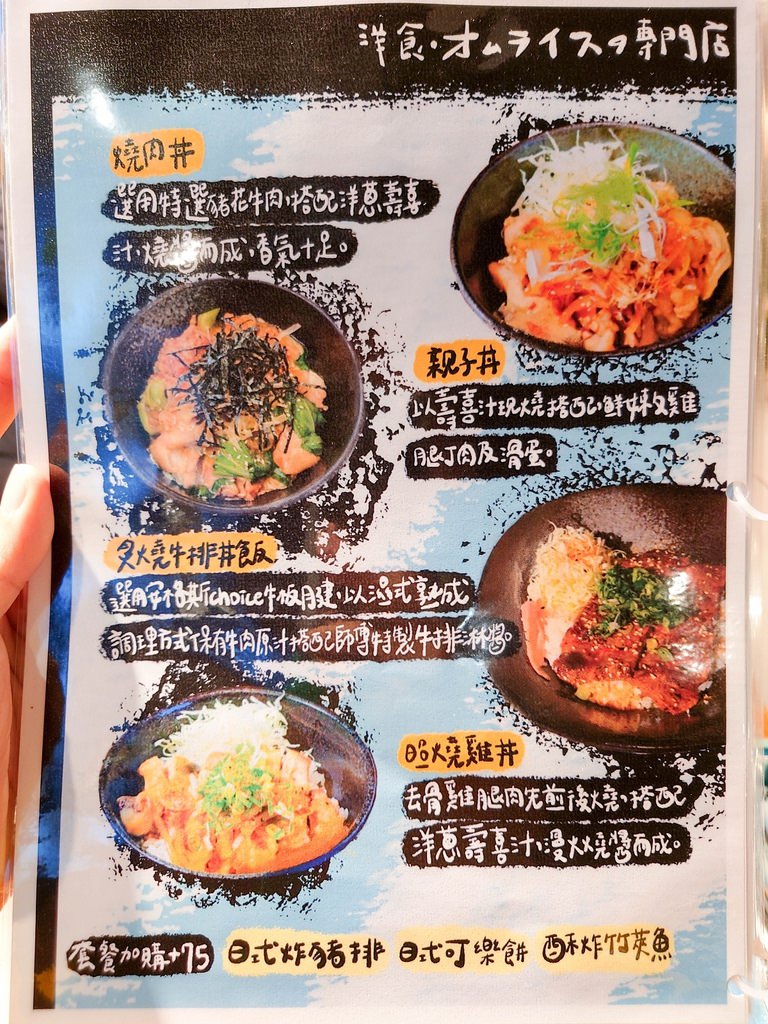 洋食·オムライスの專門店
燒肉丼
選用特選豬花牛肉,搭配洋蔥壽喜
汁,燒醬而成,香氣十足。
親子丼
以壽喜汁現燒搭配鮮嫩雞
腿丁肉及滑蛋。
炙燒牛排丼飯
選用安格斯choice牛板腱,以濕式熟成
調理方式保有牛肉原汁搭配師傅特製牛排淋醬。
照燒雞丼
去骨雞腿肉先煎後燒,搭配
洋蔥壽喜汁,慢火燒醬而成。
套餐加購+75
日式炸豬排
日式可樂餅
酥炸竹莢魚